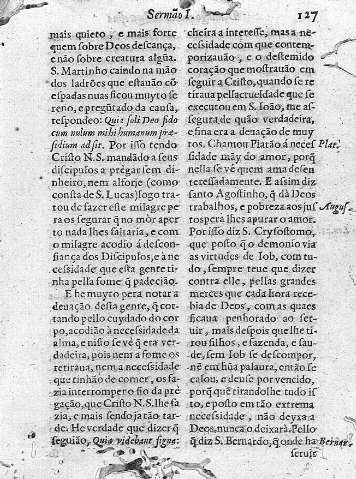 Sermão I. 127
mais quieto, e mais forte
quem sobre Deos descança,
e não sobre creatura algũa.
S. Martinho caindo na mão
dos ladrões que estauão cõ
espadas nuas ficou muyto se
reno, e pregũtado da causa,
respondeo: Quia soli Deo fido
cum nulum mihi humanum præ-
sidium adsit. Por isso tendo
Cristo N.S. mandado a seus
discipulos a prégar sem di-
nheiro, nem alforje (como
consta de S. Lucas) logo tra
tou de fazer este milagre pe
ra os segurar q̃ no mór aper
to nada lhes faltaria, e com
o milagre acodio á descon-
fiança dos Discipulos, e á ne
cessidade que esta gente ti-
nha pella fome q̃ padecião.
E he muyto pera notar a
deuação desta gente, q̃ cor-
tando pello cuydado do cor
po, acodião á necessidade da
alma, e nisso se vé q̃ era ver-
dadeira, pois nem a fome os
retiraua, nem a necessidade
que tinhão de comer, os fa-
zia interromper o fio da pre
gação, que Cristo N.S. lhe fa
zia, e mais sendo ja tão tar-
de. He verdade que dizer q̃
seguião, Quia videbant signa:
cheira a interesse, mas a ne-
cessidade com que contem-
porizauão, e o destemido
coração que mostrauão em
seguir a Ceisto, quando se re
tiraua pella crueldade que se
executou em S. Ioão, me as-
segura de quão verdadeira,
e fina era a deuação de muy
tos. Chamou Platão á neces
sidade mãy do amor, porq̃
nella se vé quem ama desen
teressadamente. E assim diz
santo Agostinho, q̃ dà Deos
trabalhos, e pobreza aos jus
tos pera lhes apurar o amor.
Por isso diz S. Crysostomo,
que posto q̃ o demonio via
as virtudes de Iob, com tu-
do, sempre teue que dizer
contra elle, pellas grandes
merces que cada hora rece-
bia de Deos, com as quaes
ficaua penhorado ao ser-
uir, mais despois que lhe ti-
rou filhos, e fazenda, e sau-
de, sem Iob se descompor,
nẽ em hũa palaura, então se
calou, e deuse por vencido,
porq̃ que tirandolhe tudo is
to, e posto em tão extrema
necessidade, não deyxa a
Deos, nunca o deixarà. Pello
q̃ diz S. Bernardo, q̃ onde ha
seruse
Plat.
Augus.
Bernar.